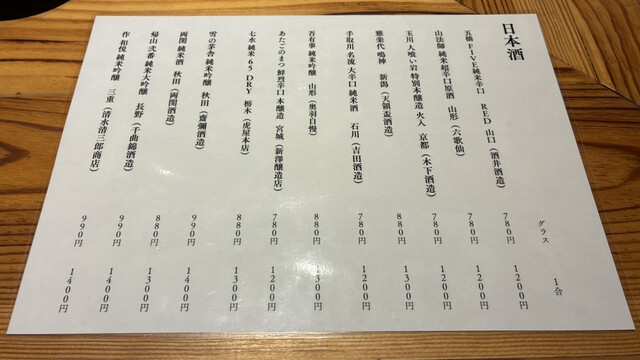 日本酒
グラス
1合
五橋 FIVE純米辛口 RED 山口(酒井酒造) 780円 1200円
山法師 純米超辛口原酒 山形(六歌仙) 780円 1200円
玉川 人喰い岩 特別本醸造 火入 京都(木下酒造) 780円 1200円
雅楽代 鳴神 新潟(天領盃酒造) 880円 1300円
手取川 名流 大辛口 純米酒 石川(吉田酒造) 780円 1200円
吾有事 純米吟醸 山形(奥羽自慢) 880円 1300円
あたごのまつ 鮮烈辛口 本醸造 宮城(新澤醸造店) 780円 1200円
七水 純米65 DRY 栃木(虎屋本店) 880円 1300円
雪の茅舎 純米吟醸 秋田(齋彌酒造) 990円 1400円
両関 純米酒 秋田(両関酒造) 880円 1300円
帰山 弐番 純米大吟醸 長野(千曲錦酒造) 990円 1400円
作 和悦 純米吟醸 三重(清水清三郎商店) 990円 1400円